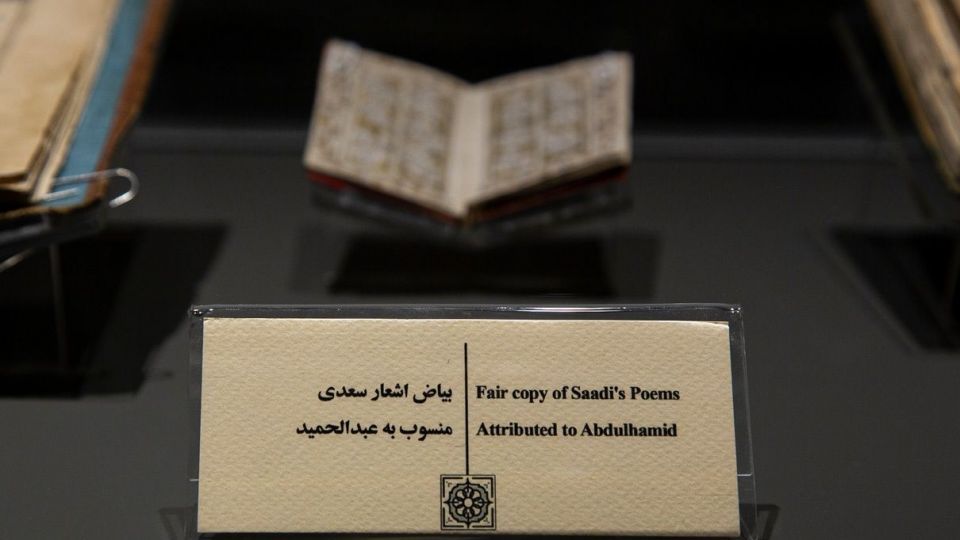 بیاض اشعار سعدی
منسوب به عبدالحمید
Fair copy of Saadi's Poems
Attributed to Abdulhamid